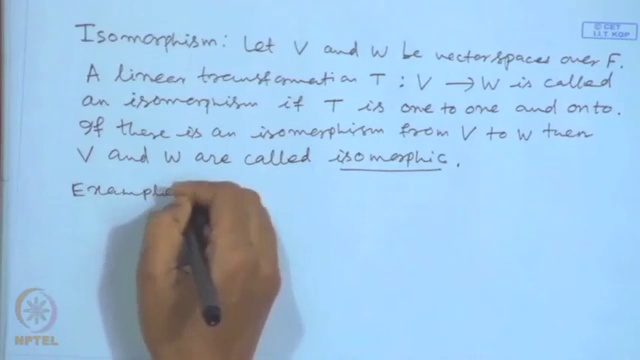 © CET
I.I.T. KGP
Isomorphism: Let V and W be vector spaces over F.
A linear transformation T : V → W is called
an isomorphism if T is one to one and onto.
If there is an isomorphism from V to W then
V and W are called isomorphic.
Example
NPTEL